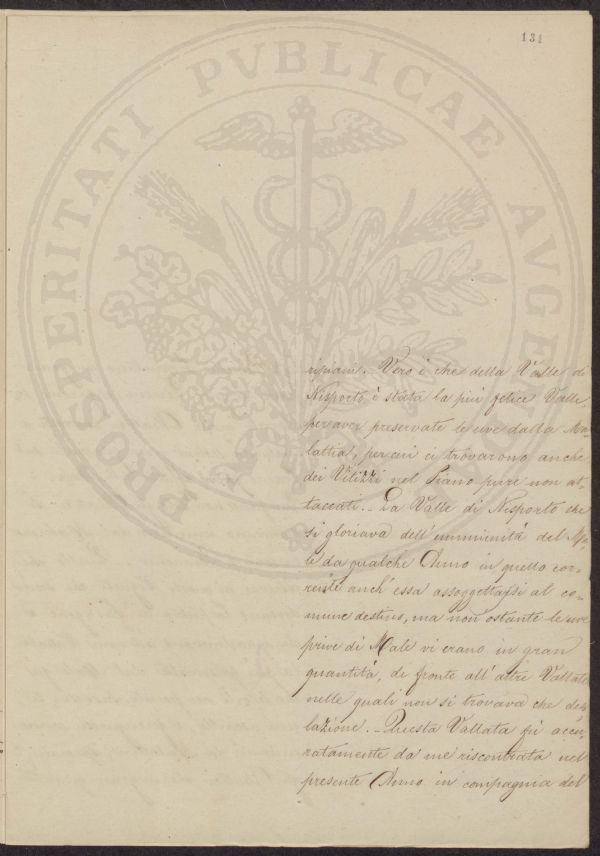 131
PROSPERITATI PVBLICAE AVGENDAE
ripiani. Vero è che della Valle di
Nisporto è stata la più felice Valle
per aver preservate le uve dalla Ma=
lattia, per cui ci trovarono anche
dei Vitizzi nel Piano pure non at=
taccati. La Valle di Nisporto che
si gloriava dell'immunità del Ma=
le da qualche Anno in quello cor=
rente anch'essa assoggettassi al co=
mune destino, ma non ostante le uve
prive di Male vi erano in gran
quantità, di fronte all'altre Vallate
nelle quali non si trovava che deso
lazione. Questa Vallata fù accu=
ratamente da me riscontrata nel
presente Anno in compagnia del